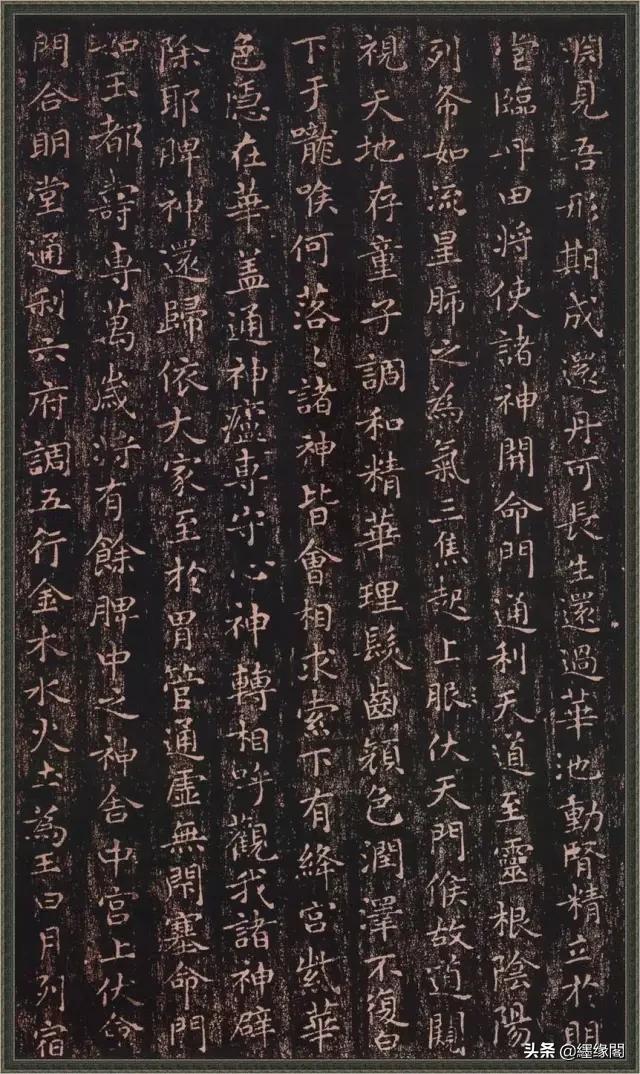 淵見吾形期成還丹可長生還過華池動腎精立於明
堂臨丹田將使諸神開命門通利天道至靈根陰陽
列布如流星肺之為氣三焦起上服伏天門候故道闚
視天地存童子調和精華理髮齒顏色潤澤不復白
下于嚨喉何落〻諸神皆會相求索下有絳宮紫華
色隱在華盖通神廬專守心神轉相呼觀我諸神辟
除耶脾神還歸依大家至於胃管通虛無閇塞命門
如玉都壽專萬歲將有餘脾中之神舍中宮上伏命
門合明堂通利六府調五行金木水火土為王日月列宿
头条 @纆缘閣